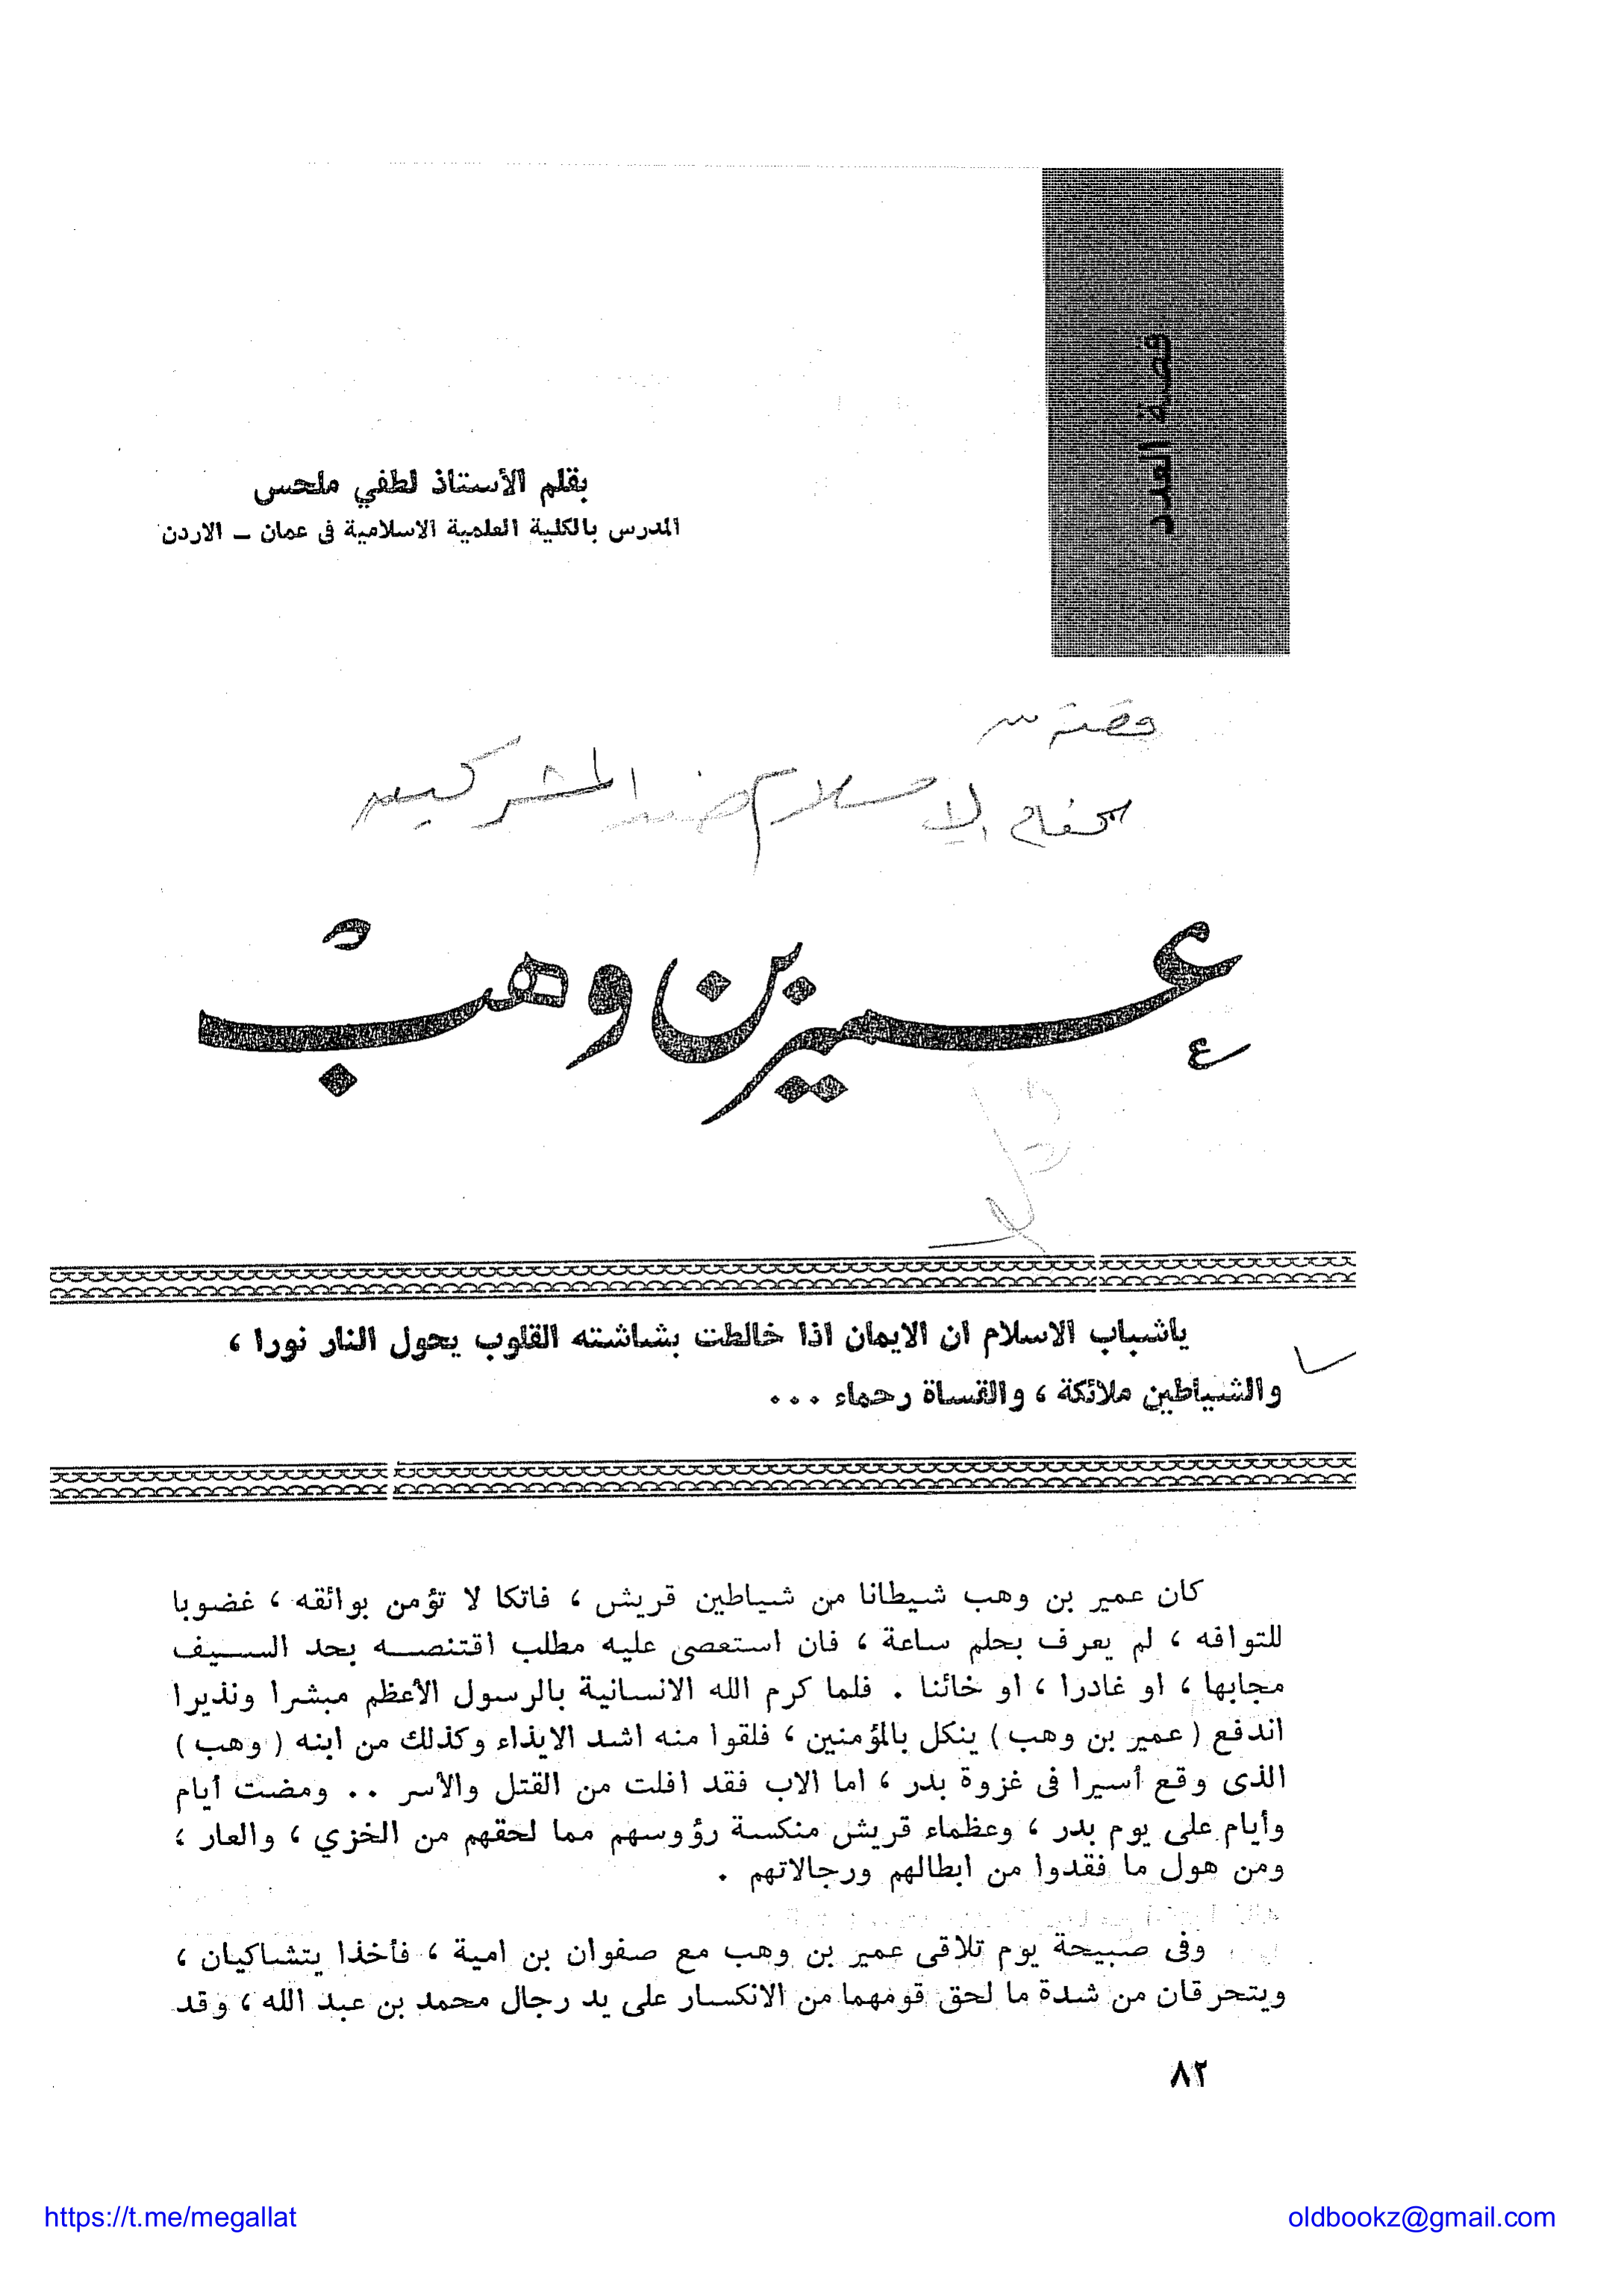 قصة العدد
بقلم الأستاذ لطفي ملحس
المدرس بالكلية العلمية الاسلامية فى عمان – الاردن
قصة
كفاح الاسلام ضد المشركين
عمير بن وهب
ياشباب الاسلام ان الايمان اذا خالطت بشاشته القلوب يحول النار نورا ،
والشياطين ملائكة ، والقساة رحماء ...
كان عمير بن وهب شيطانا من شياطين قريش ، فاتكا لا تؤمن بوائقه ، غضوبا
للتوافه ، لم يعرف بحلم ساعة ، فان استعصى عليه مطلب اقتنصه بحد السيف
مجابها ، او غادرا ، او خائنا . فلما كرم الله الانسانية بالرسول الأعظم مبشرا ونذيرا
اندفع ( عمير بن وهب ) ينكل بالمؤمنين ، فلقوا منه اشد الايذاء وكذلك من ابنه ( وهب )
الذى وقع أسيرا فى غزوة بدر ، اما الاب فقد افلت من القتل والأسر .. ومضت أيام
وأيام على يوم بدر ، وعظماء قريش منكسة رؤوسهم مما لحقهم من الخزي ، والعار ،
ومن هول ما فقدوا من ابطالهم ورجالاتهم .
وفى صبيحة يوم تلاقى عمير بن وهب مع صفوان بن امية ، فأخذا يتشاكيان ،
ويتحرقان من شدة ما لحق قومهما من الانكسار على يد رجال محمد بن عبد الله ، وقد
٨٢
https://t.me/megallat
oldbookz@gmail.com